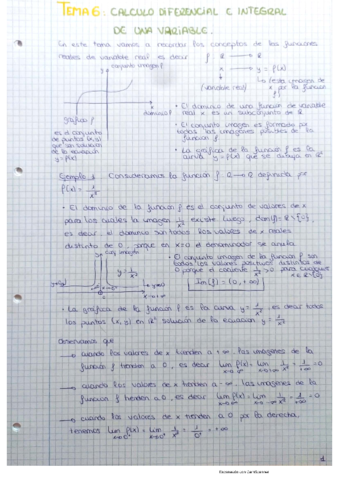 TEMA 6. CALCULO DIFERENCIAL E INTEGRAL
DE UNA VARIABLE.
En este tema vamos a recordar los conceptos de las funciones
reales de variable real, es decir
f: R → R
x → y = f(x)
conjunto imagen f
(variable real)
(es la imagen de
x por la función
f)
dominio f
gráfica f
es el conjunto
de puntos (x, y)
que son solución
de la ecuación
y = f(x)
• El dominio de una función de variable
real x es un subconjunto de R
• El conjunto imagen es formado por
todas las imágenes posibles de la
función f.
• La gráfica de la función f es la
curva y = f(x) que se dibuja en R²
Ejemplo 1 Consideramos la función f: R → R definida por
f(x) = 1/x²
• El dominio de la función f es el conjunto de valores de x
para los cuales la imagen 1/x² existe. Luego, dom(f) = R \ {0},
es decir, el dominio son todos los valores de x reales
distintos de 0, porque en x=0 el denominador se anula.
• El conjunto imagen de la función f son
todos los valores positivos distintos de
0 porque el cociente 1/x² > 0 para cualquier
x ∈ R - {0}
y = 1/x²
Im(f) = (0, +∞)
• La gráfica de la función f es la curva y = 1/x², es decir todos
los puntos (x, y) en R² solución de la ecuación y = 1/x²
Observamos que
→ cuando los valores de x tienden a +∞, las imágenes de la
función f tienden a 0, es decir lim f(x) = lim 1/x² = 1/+∞ = 0
→ cuando los valores de x tienden a -∞, las imágenes de la
función f tienden a 0, es decir lim f(x) = lim 1/x² = 1/+∞ = 0
→ cuando los valores de x tienden a 0 por la derecha,
tenemos lim f(x) = lim 1/x² = 1/0⁺ = +∞